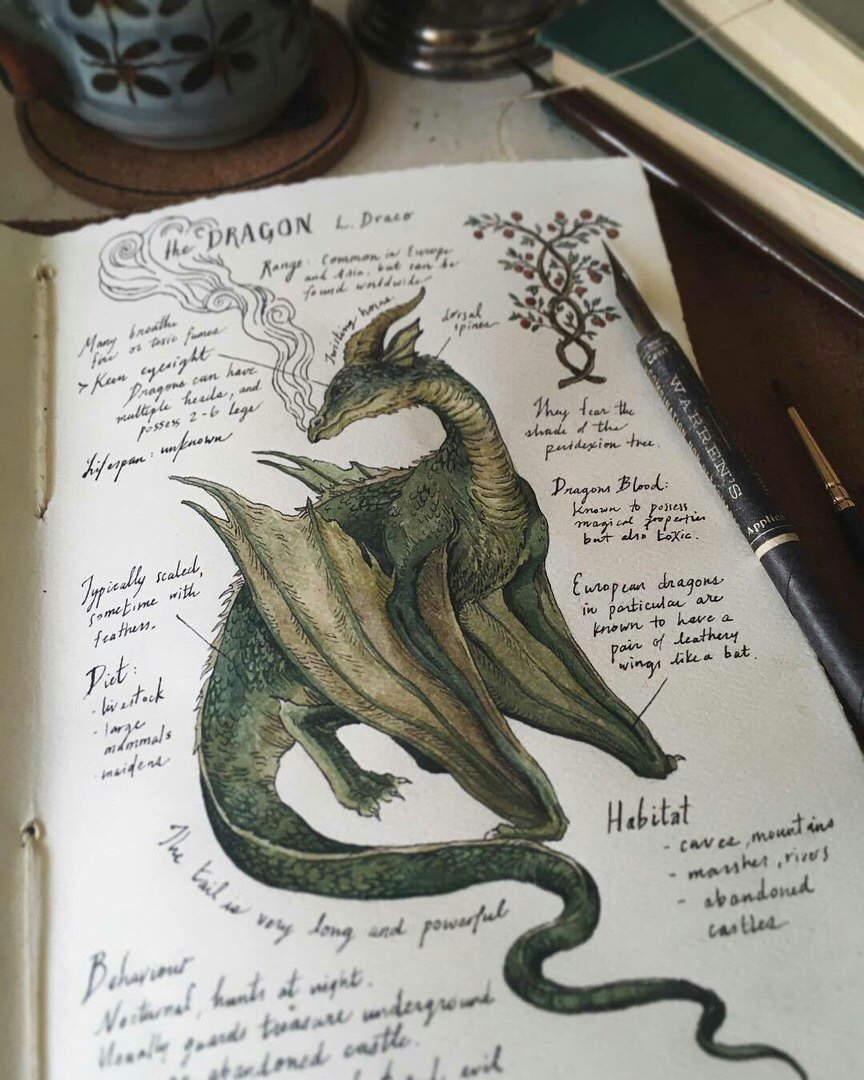 the DRAGON L. Draco
Range: Common in Europe
and Asia, but can be
found worldwide
Many breathe
fire or toxic fumes
> Keen eyesight
Dragons can have
multiple heads, and
possess 2-6 legs
Lifespan: unknown
twisting horns
dorsal
spines
They fear the
shade of the
peridexion tree.
Dragons Blood:
known to possess
magical properties
but also toxic.
European dragons
in particular are
known to have a
pair of leathery
wings like a bat.
Typically scaled,
sometime with
feathers.
Diet:
- livestock
- large
mammals
- maidens
Habitat
- caves, mountains
- marshes, rivers
- abandoned
castles
The tail is very long and powerful
Behaviour
Nocturnal, hunts at night.
Usually guards treasure underground
abandoned castle.
evil
WARREN'S
Applied